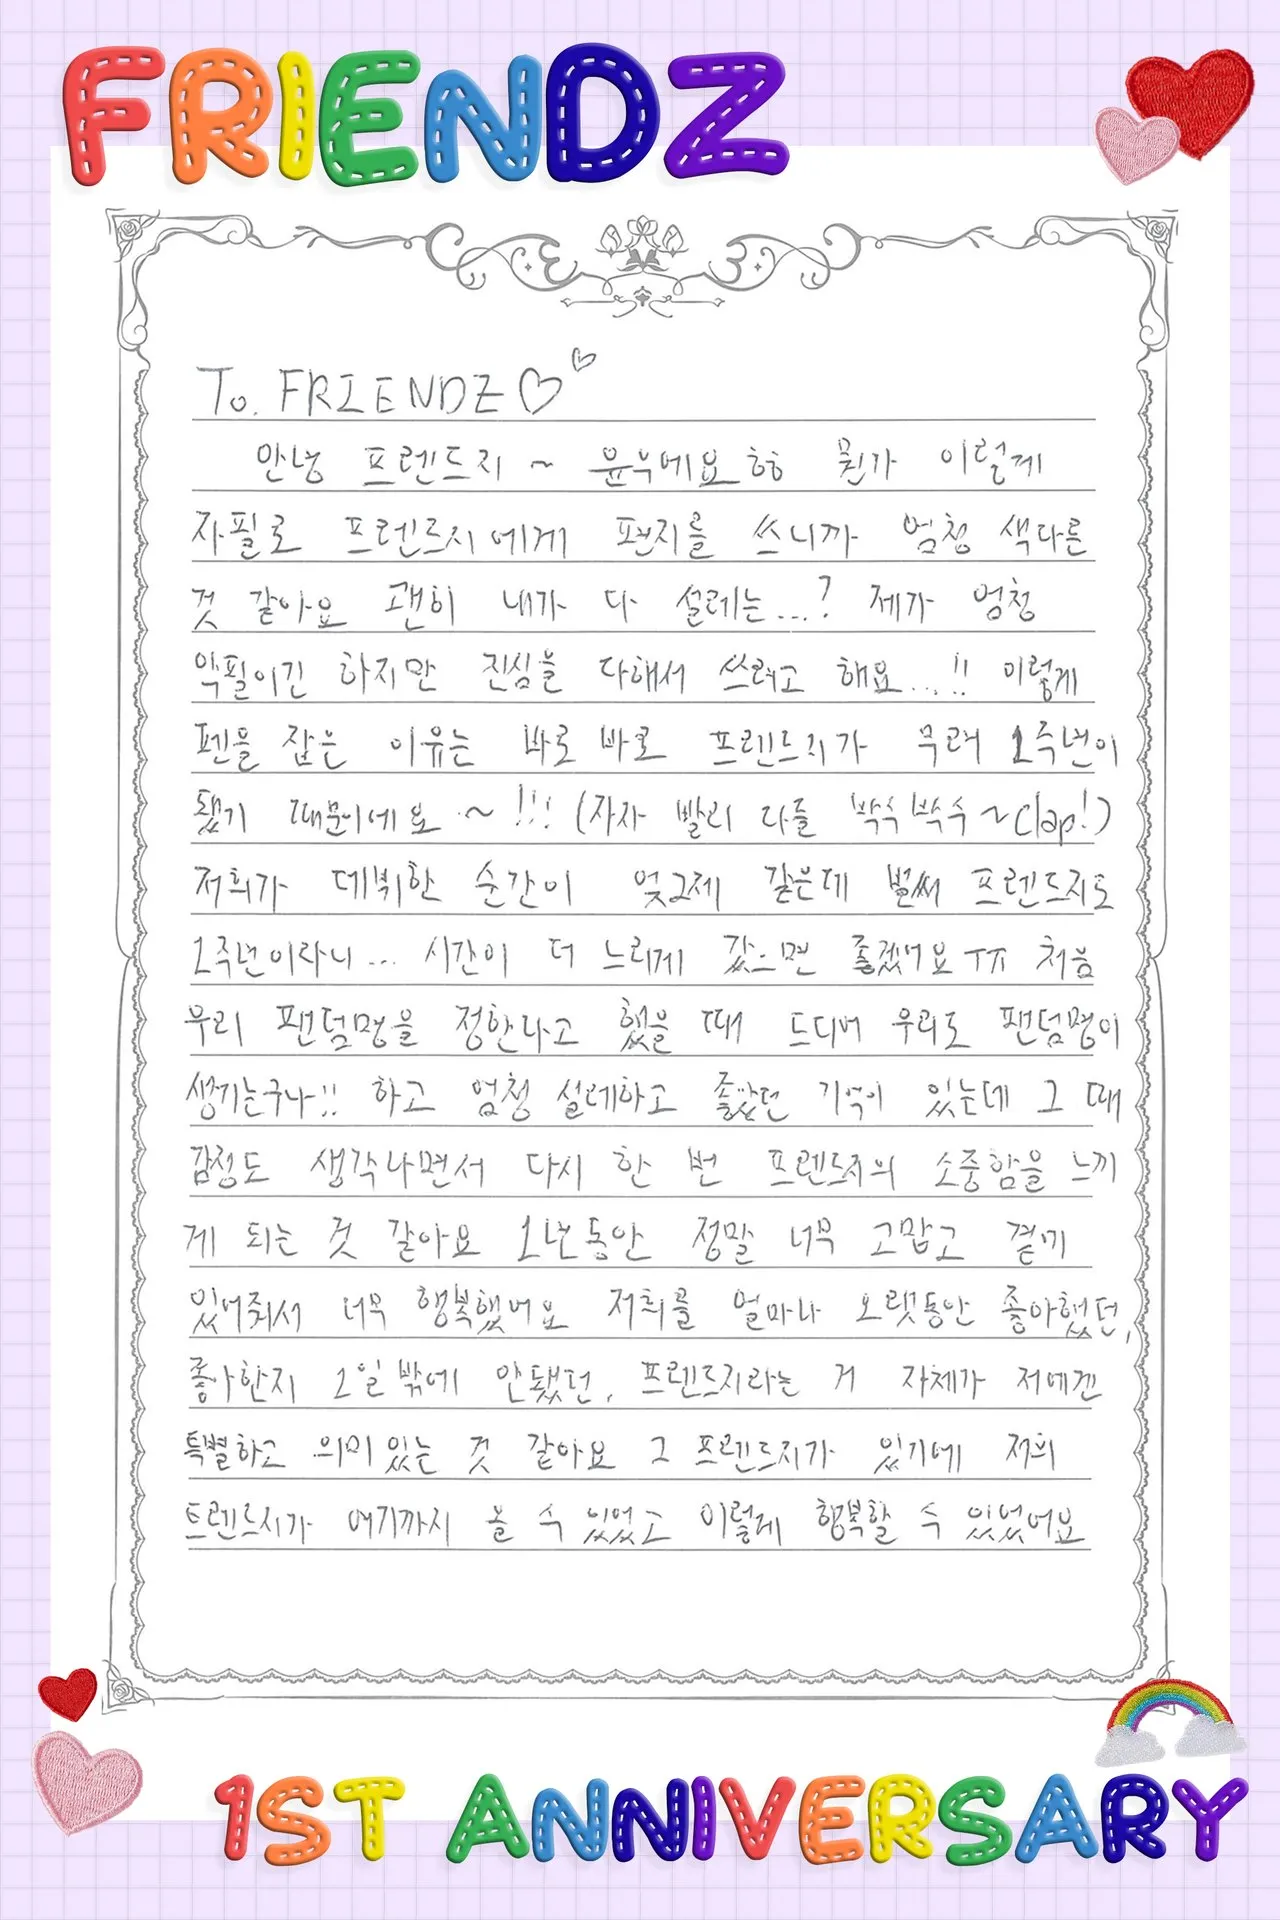 FRIENDZ
To. FRIENDZ♡♡
안녕 프렌드지 ~ 윤우에요 ㅎㅎ 뭔가 이렇게
자필로 프렌드지에게 편지를 쓰니까 엄청 색다른
것 같아요 괜히 내가 다 설레는...? 제가 엄청
악필이긴 하지만 진심을 다해서 쓰려고 해요...!! 이렇게
펜을 잡은 이유는 바로 바로 프렌드지가 무려 1주년이
됐기 때문이에요 ~!!! (자자 빨리 다들 박수 박수 ~ Clap!)
저희가 데뷔한 순간이 엊그제 같은데 벌써 프렌드지도
1주년이라니... 시간이 더 느리게 갔으면 좋겠어요 ㅠㅠ 처음
우리 팬덤명을 정한다고 했을 때 드디어 우리도 팬덤명이
생기는구나!! 하고 엄청 설레하고 좋았던 기억이 있는데 그 때
감정도 생각나면서 다시 한 번 프렌드지의 소중함을 느끼
게 되는 것 같아요 1년동안 정말 너무 고맙고 곁에
있어줘서 너무 행복했어요 저희를 얼마나 오랫동안 좋아했던,
좋아한지 1일 밖에 안됐던, 프렌드지라는 거 자체가 저에겐
특별하고 의미있는 것 같아요 그 프렌드지가 있기에 저희
트렌드지가 여기까지 올 수 있었고 이렇게 행복할 수 있었어요
1ST ANNIVERSARY